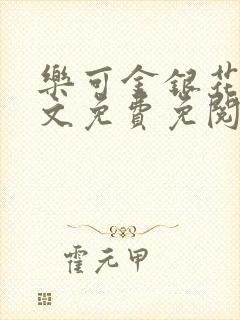 樂可金銀花
文免費免閱
霍元甲